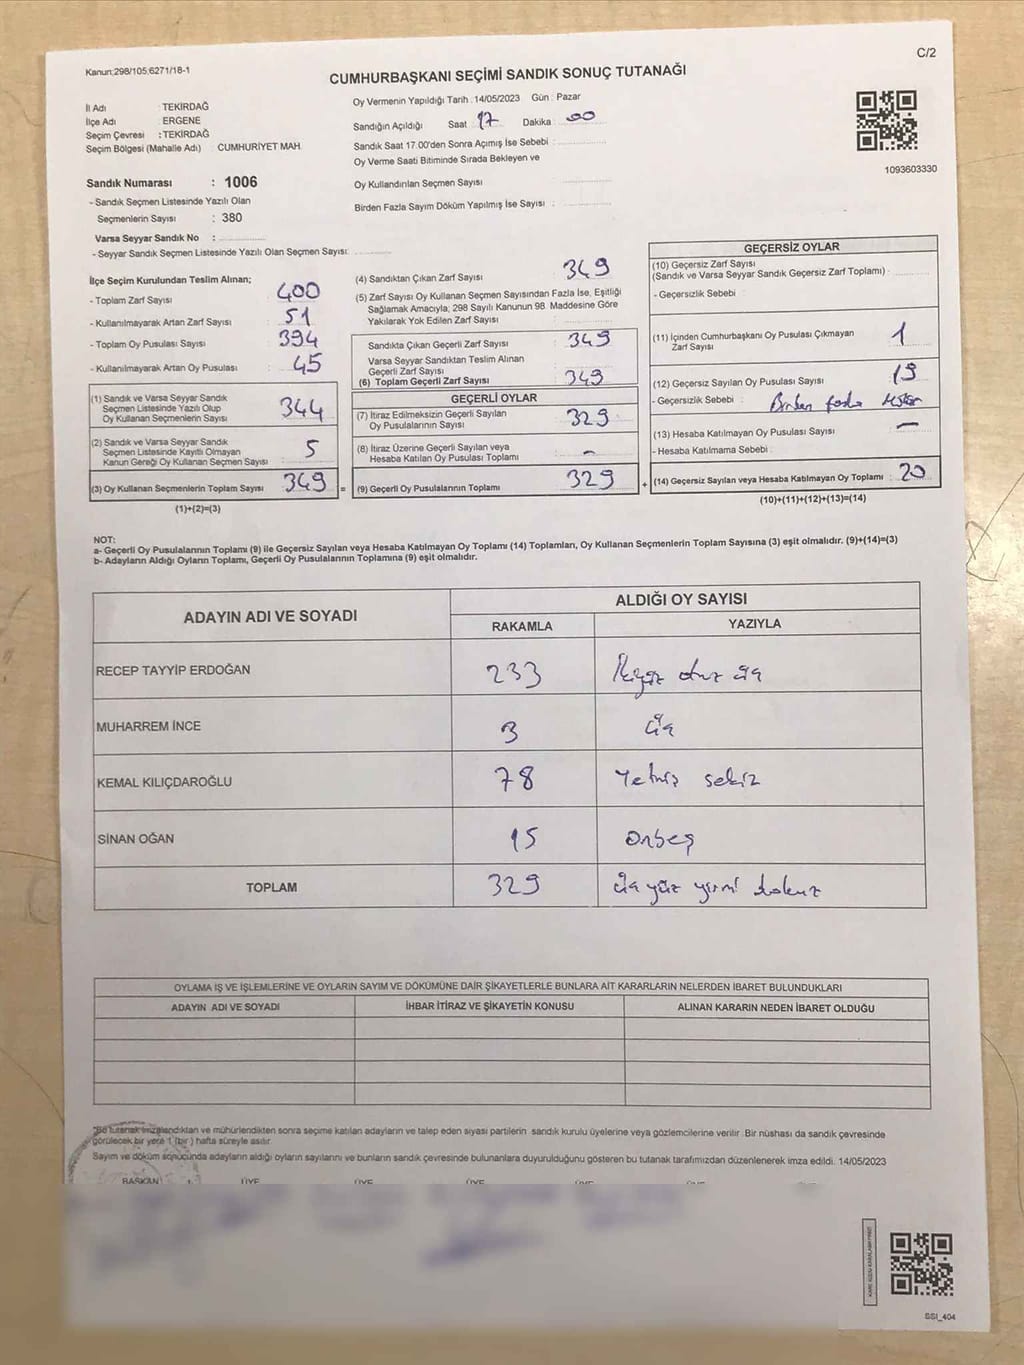 Kanun:298/105;6271/18-1
C/2
CUMHURBAŞKANI SEÇİMİ SANDIK SONUÇ TUTANAĞI
İl Adı : TEKİRDAĞ
İlçe Adı : ERGENE
Seçim Çevresi : TEKİRDAĞ
Seçim Bölgesi (Mahalle Adı) : CUMHURİYET MAH.
Oy Vermenin Yapıldığı Tarih : 14/05/2023 Gün : Pazar
Sandığın Açıldığı Saat 17 Dakika : 00
Sandık Saat 17.00'den Sonra Açımış İse Sebebi :
Oy Verme Saati Bitiminde Sırada Bekleyen ve
Oy Kullandırılan Seçmen Sayısı :
Birden Fazla Sayım Döküm Yapılmış İse Sayısı :
1093603330
Sandık Numarası : 1006
- Sandık Seçmen Listesinde Yazılı Olan
Seçmenlerin Sayısı : 380
Varsa Seyyar Sandık No :
- Seyyar Sandık Seçmen Listesinde Yazılı Olan Seçmen Sayısı:
İlçe Seçim Kurulundan Teslim Alınan;
- Toplam Zarf Sayısı : 400
- Kullanılmayarak Artan Zarf Sayısı : 51
- Toplam Oy Pusulası Sayısı : 394
- Kullanılmayarak Artan Oy Pusulası : 45
(1) Sandık ve Varsa Seyyar Sandık
Seçmen Listesinde Yazılı Olup
Oy Kullanan Seçmenlerin Sayısı : 344
(2) Sandık ve Varsa Seyyar Sandık
Seçmen Listesinde Kayıtlı Olmayan
Kanun Gereği Oy Kullanan Seçmen Sayısı : 5
(3) Oy Kullanan Seçmenlerin Toplam Sayısı : 349 =
(1)+(2)=(3)
(4) Sandıktan Çıkan Zarf Sayısı : 349
(5) Zarf Sayısı Oy Kullanan Seçmen Sayısından Fazla İse, Eşitliği
Sağlamak Amacıyla; 298 Sayılı Kanunun 98. Maddesine Göre
Yakılarak Yok Edilen Zarf Sayısı :
Sandıkta Çıkan Geçerli Zarf Sayısı : 349
Varsa Seyyar Sandıktan Teslim Alınan
Geçerli Zarf Sayısı :
(6) Toplam Geçerli Zarf Sayısı : 349
GEÇERLİ OYLAR
(7) İtiraz Edilmeksizin Geçerli Sayılan
Oy Pusulalarının Sayısı : 329
(8) İtiraz Üzerine Geçerli Sayılan veya
Hesaba Katılan Oy Pusulası Toplamı : -
(9) Geçerli Oy Pusulalarının Toplamı : 329 +
GEÇERSİZ OYLAR
(10) Geçersiz Zarf Sayısı
(Sandık ve Varsa Seyyar Sandık Geçersiz Zarf Toplamı) :
- Geçersizlik Sebebi :
(11) İçinden Cumhurbaşkanı Oy Pusulası Çıkmayan
Zarf Sayısı : 1
(12) Geçersiz Sayılan Oy Pusulası Sayısı : 19
- Geçersizlik Sebebi : Birden fazla
(13) Hesaba Katılmayan Oy Pusulası Sayısı : -
- Hesaba Katılmama Sebebi :
(14) Geçersiz Sayılan veya Hesaba Katılmayan Oy Toplamı : 20
(10)+(11)+(12)+(13)=(14)
NOT:
a- Geçerli Oy Pusulalarının Toplamı (9) ile Geçersiz Sayılan veya Hesaba Katılmayan Oy Toplamı (14) Toplamları, Oy Kullanan Seçmenlerin Toplam Sayısına (3) eşit olmalıdır. (9)+(14)=(3)
b- Adayların Aldığı Oyların Toplamı, Geçerli Oy Pusulalarının Toplamına (9) eşit olmalıdır.
ADAYIN ADI VE SOYADI
ALDIĞI OY SAYISI
RAKAMLA YAZIYLA
RECEP TAYYİP ERDOĞAN 233 İkiyüz otuz üç
MUHARREM İNCE 3 üç
KEMAL KILIÇDAROĞLU 78 Yetmiş sekiz
SİNAN OĞAN 15 onbeş
TOPLAM 329 üç yüz yirmi dokuz
OYLAMA İŞ VE İŞLEMLERİNE VE OYLARIN SAYIM VE DÖKÜMÜNE DAİR ŞİKAYETLERLE BUNLARA AİT KARARLARIN NELERDEN İBARET BULUNDUKLARI
ADAYIN ADI VE SOYADI İHBAR İTİRAZ VE ŞİKAYETİN KONUSU ALINAN KARARIN NEDEN İBARET OLDUĞU
*Bu tutanak imzalandıktan ve mühürlendikten sonra seçime katılan adayların ve talep eden siyasi partilerin sandık kurulu üyelerine veya gözlemcilerine verilir. Bir nüshası da sandık çevresinde
görülecek bir yere 1 (bir) hafta süreyle asılır.
Sayım ve döküm sonucunda adayların aldığı oyların sayılarını ve bunların sandık çevresinde bulunanlara duyurulduğunu gösteren bu tutanak tarafımızdan düzenlenerek imza edildi. 14/05/2023
BAŞKAN ÜYE ÜYE ÜYE ÜYE ÜYE
SSI_404